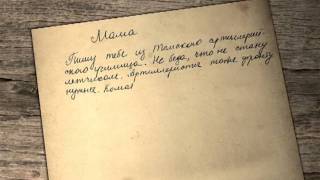 Мама
Пишу тебе из Томского артиллерий-
ского училища. Не беда, что не стану
летчиком. Артиллеристы тоже фронту
нужны. Кома